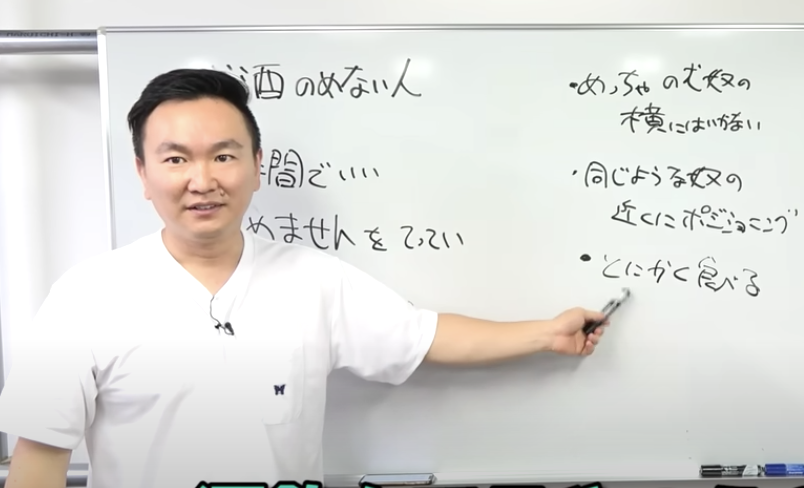 酒のめない人
間でいい
めませんをてってい
・めっちゃのむ奴の
横にはいかない
・同じような奴の
近くにポジショニング
・とにかく食べる